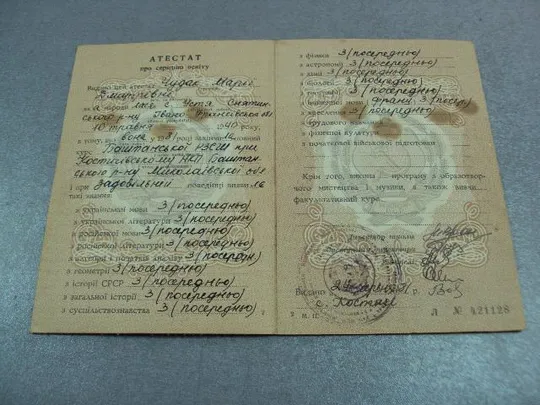 АТЕСТАТ
про середню освіту
Видано цей атестат Чудак Марії
Дмитрівні
яка народилася в с. Устя Снятин-
ського р-ну Івано-Франківської обл
10 травня 1940 року,
в тому, що вона у 19
курс Баштанської РЗСШ при
Костичівському НКП Баштан-
ського р-ну Миколаївської обл
і при Задовільній поведінці виявила
такі знання:
з української мови 3 (посередньо)
з української літератури 3 (посередньо)
з російської мови 3 (посередньо)
з російської літератури 3 (посередньо)
з алгебри і початків аналізу 3 (посередн)
з геометрії 3 (посередньо)
з історії СРСР 3 (посередньо)
з загальної історії 3 (посередньо)
з суспільствознавства 3 (посередньо)
з фізики 3 (посередньо)
з астрономії 3 (посередньо)
з хімії 3 (посередньо)
з біології 3 (посередньо)
з географії 3 (посередньо)
мови франц 3 (посер)
з креслення 3 (посередньо)
трудового навчання
з фізичної культури
з початкової військової підготовки
Крім того, виконала програму з образотвор-
чого мистецтва і музики, а також вивчила
факультативний курс
Директор школи
Видано
с. Костичі
Л № 421128